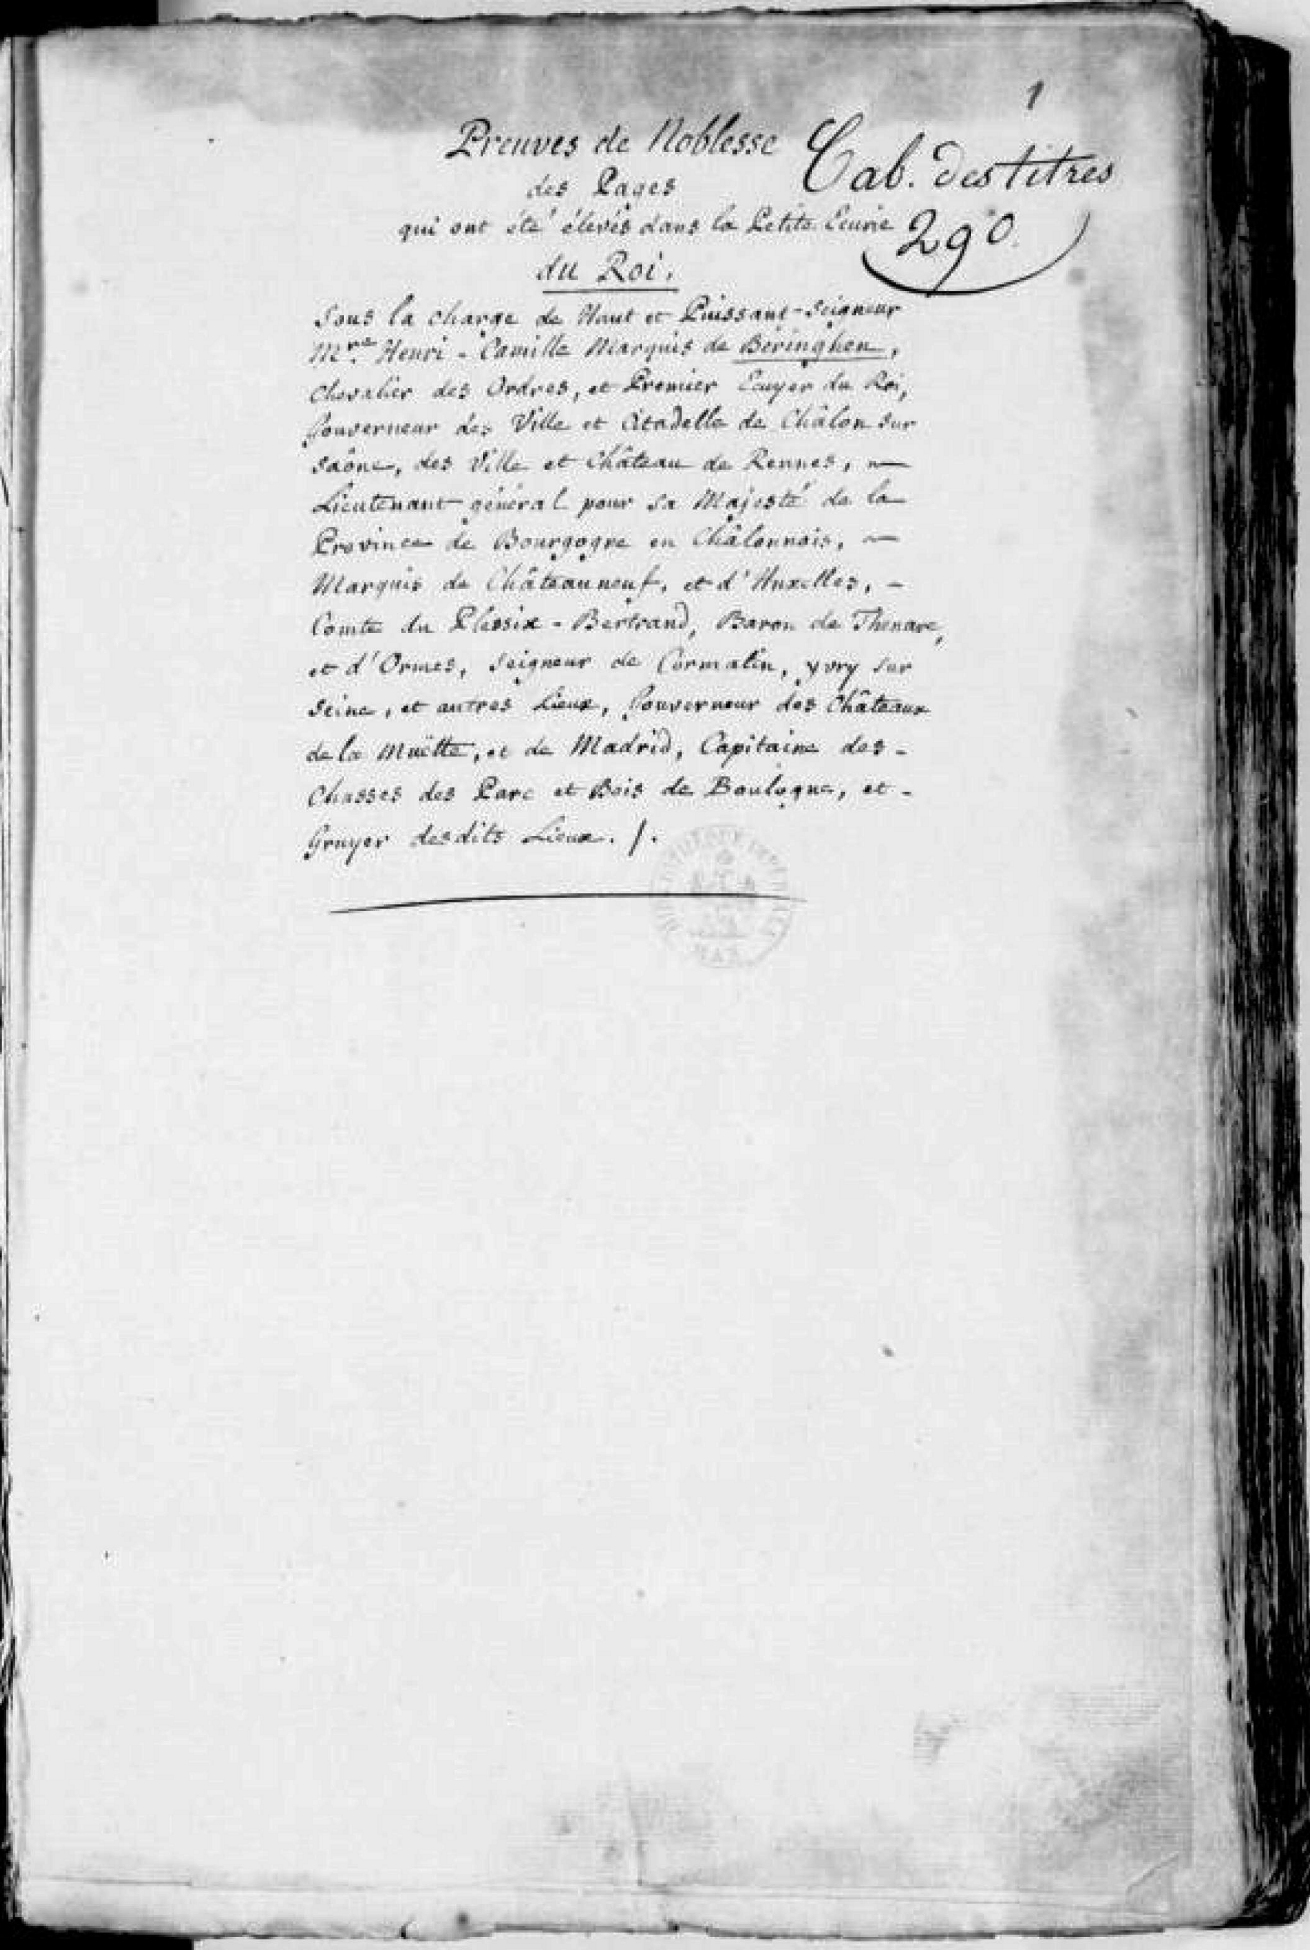 1
Preuves de Noblesse
Cab. des titres
290
des Pages
qui ont été élevés dans la Petite Ecurie
du Roi.
Sous la charge de Haut et Puissant-Seigneur
Mre Henri-Camille Marquis de Béringhen,
Chevalier des Ordres, et Premier Ecuyer du Roi,
Gouverneur des Ville et Citadelle de Châlon sur
Saône, des Ville et Château de Rennes, ~
Lieutenant général pour Sa Majesté de la
Province de Bourgogne en Châlonnois, ~
Marquis de Châteauneuf, et d'Huxelles, -
Comte du Plessix-Bertrand, Baron de Thenare,
et d'Ormes, Seigneur de Cormatin, yvry sur
Seine, et autres Lieux, Gouverneur des Châteaux
de la Muëtte, et de Madrid, Capitaine des -
Chasses des Parc et Bois de Boulogne, et -
Gruyer desdits Lieux. /.